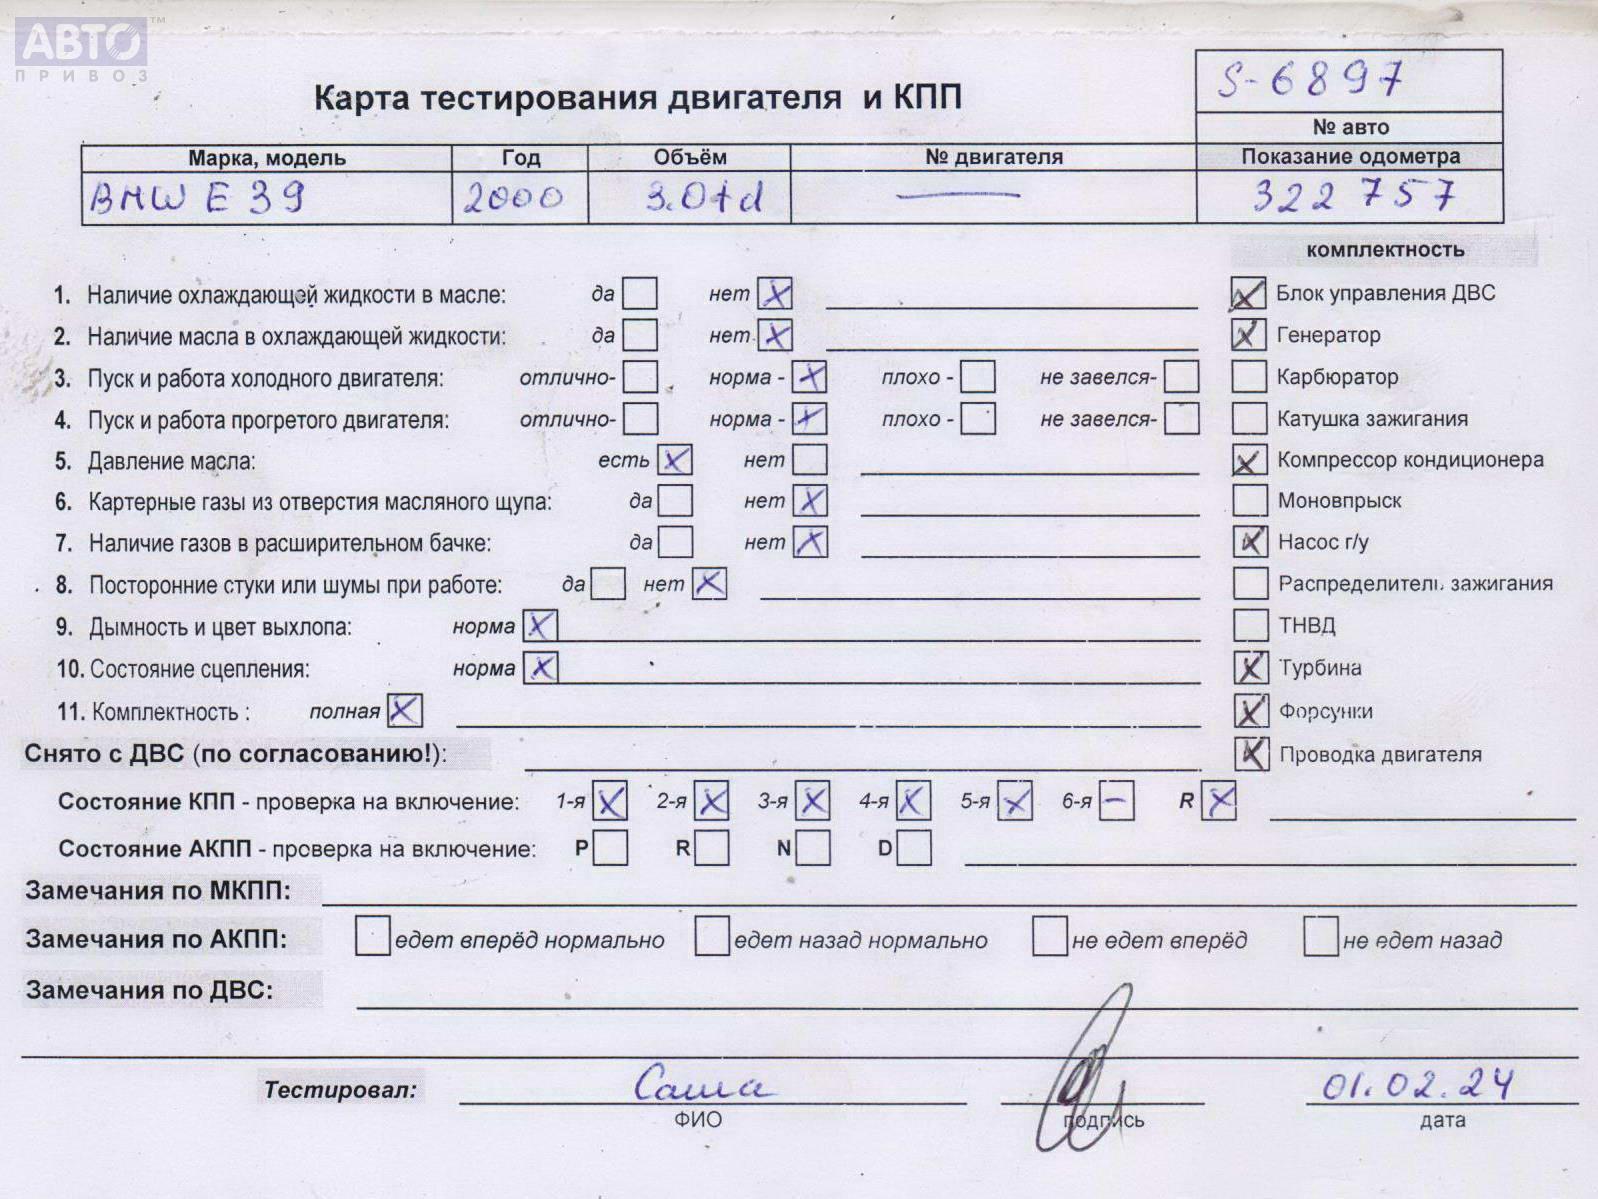 АВТО™
ПРИВОЗ
Карта тестирования двигателя и КПП
S-6897
№ авто
Марка, модель Год Объём № двигателя Показание одометра
BMW E 39 2000 3.0td — 322 757
комплектность
1. Наличие охлаждающей жидкости в масле: да нет X Блок управления ДВС
2. Наличие масла в охлаждающей жидкости: да нет X Генератор
3. Пуск и работа холодного двигателя: отлично- норма - X плохо - не завелся- Карбюратор
4. Пуск и работа прогретого двигателя: отлично- норма - X плохо - не завелся- Катушка зажигания
5. Давление масла: есть X нет Компрессор кондиционера
6. Картерные газы из отверстия масляного щупа: да нет X Моновпрыск
7. Наличие газов в расширительном бачке: да нет X Насос г/у
8. Посторонние стуки или шумы при работе: да нет X Распределитель зажигания
9. Дымность и цвет выхлопа: норма X ТНВД
10. Состояние сцепления: норма X Турбина
11. Комплектность : полная X Форсунки
Снято с ДВС (по согласованию!): Проводка двигателя
Состояние КПП - проверка на включение: 1-я X 2-я X 3-я X 4-я X 5-я X 6-я – R X
Состояние АКПП - проверка на включение: P R N D
Замечания по МКПП:
Замечания по АКПП: едет вперёд нормально едет назад нормально не едет вперёд не едет назад
Замечания по ДВС:
Тестировал: Саша 01.02.24
ФИО подпись дата